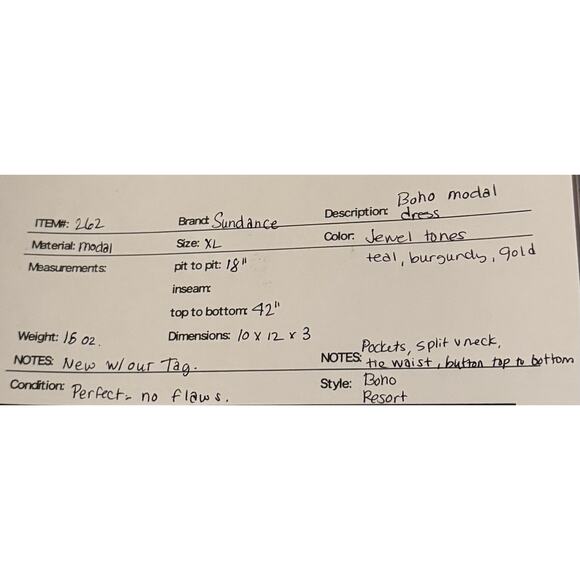 ITEM#: 262 Brand: Sundance Description: Boho modal dress
Material: modal Size: XL Color: Jewel tones
teal, burgundy, gold
Measurements: pit to pit: 18"
inseam:
top to bottom: 42"
Weight: 15 oz. Dimensions: 10 x 12 x 3
NOTES: New w/our Tag. NOTES: Pockets, split v neck,
tie waist, button top to bottom
Condition: Perfect - no flaws. Style: Boho
Resort